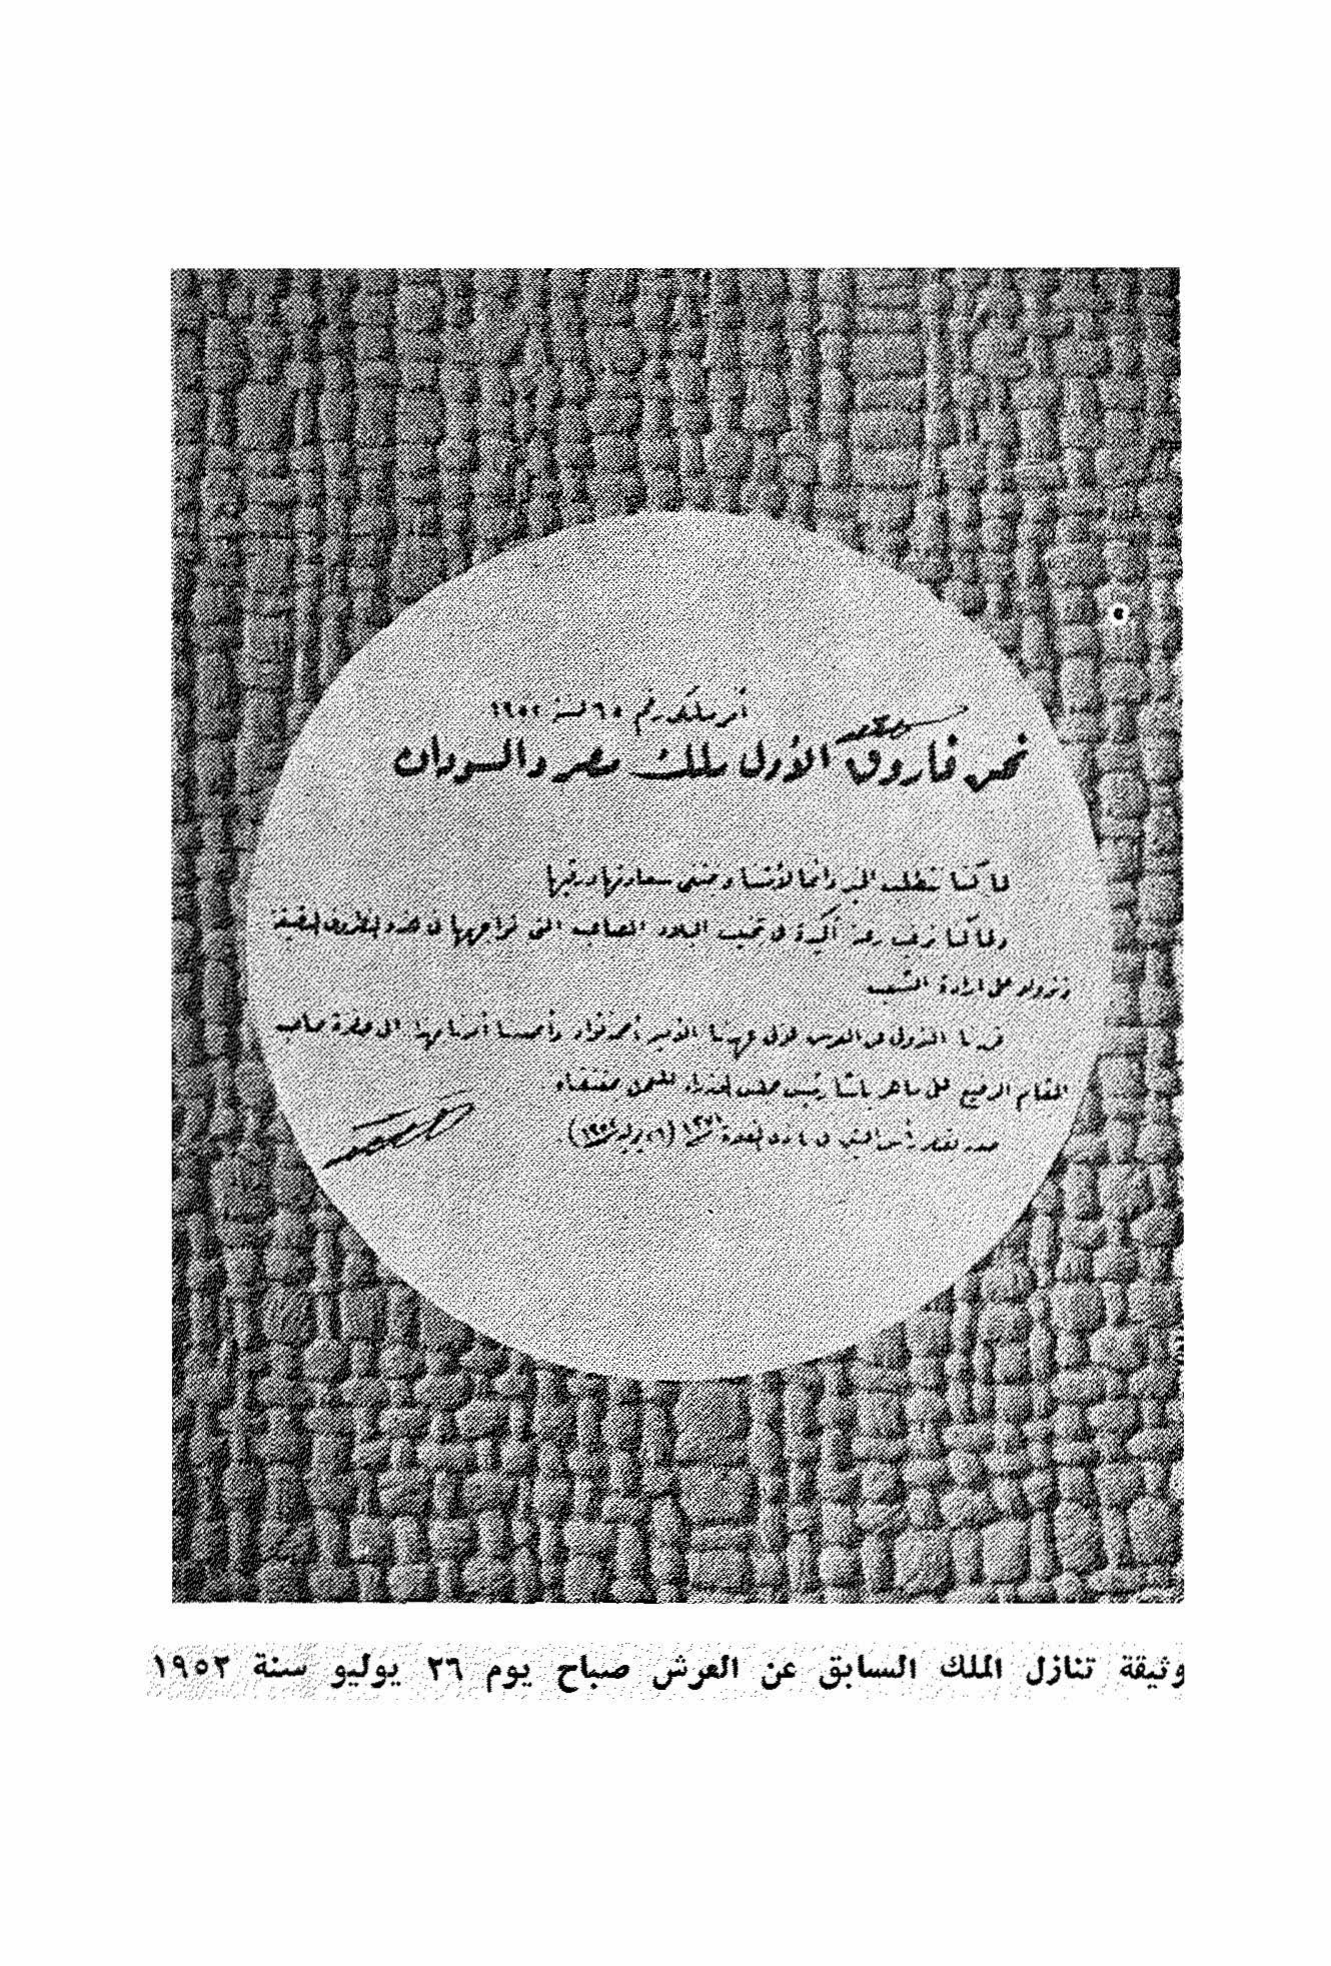 أمر ملكى رقم ٦٥ لسنة ١٩٥٢
نحن فاروق الأول ملك مصر والسودان
لما كنا نتطلب الخير دائما لأمتنا ونبتغى سعادتها ورقيها
ولما كنا نرغب رغبة أكيدة فى تجنيب البلاد المصاعب التى تواجهها فى هذه الظروف الدقيقة
ونزولا على ارادة الشعب
قررنا النزول عن العرش لولى عهدنا الأمير أحمد فؤاد وأصدرنا أمرنا بهذا الى حضرة صاحب
المقام الرفيع على ماهر باشا رئيس مجلس الوزراء للعمل بمقتضاه
صدر بقصر رأس التين فى ٤ ذى القعدة ١٣٧١ (٢٦ يوليه ١٩٥٢)
وثيقة تنازل الملك السابق عن العرش صباح يوم ٢٦ يوليو سنة ١٩٥٢